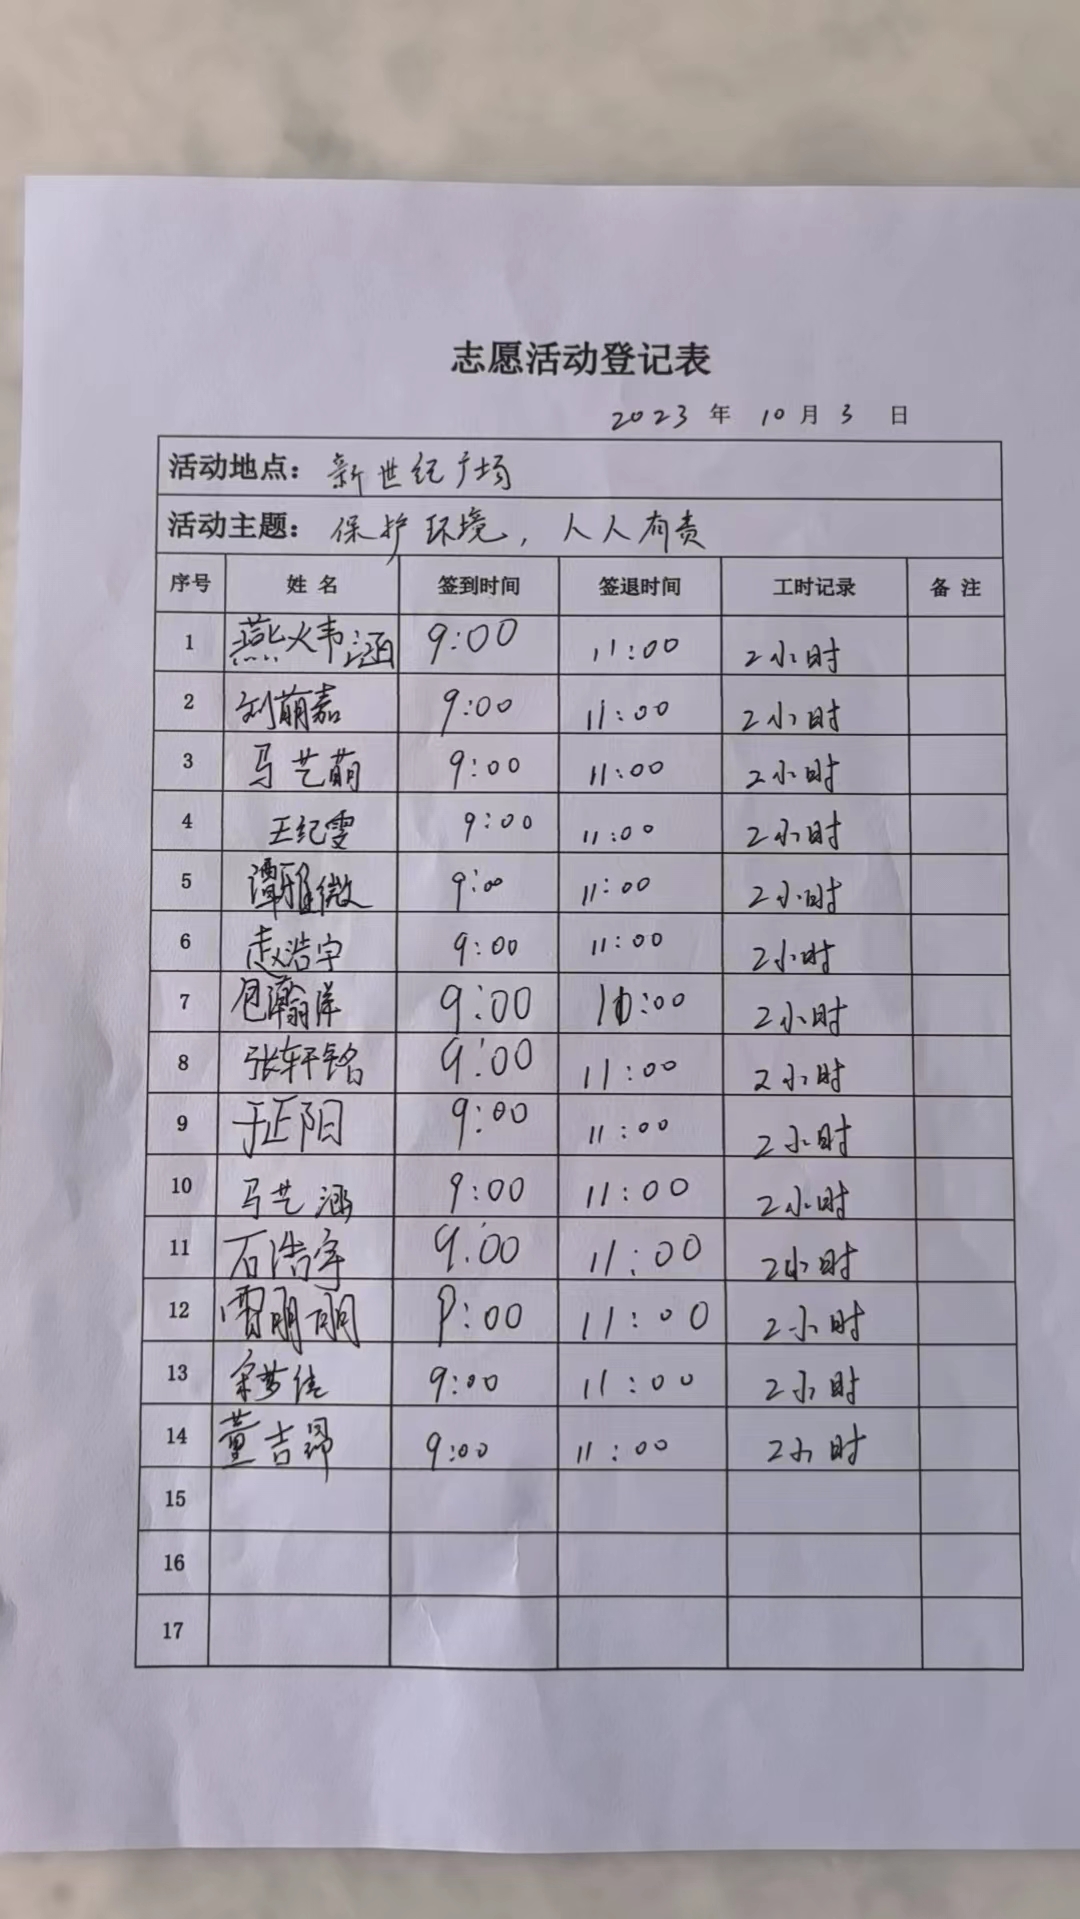 志愿活动登记表
2023 年 10 月 3 日
活动地点：新世纪广场
活动主题：保护环境，人人有责
序号 姓名 签到时间 签退时间 工时记录 备注
1 燕炜涵 9:00 11:00 2小时
2 刘萌嘉 9:00 11:00 2小时
3 马艺萌 9:00 11:00 2小时
4 王纪雯 9:00 11:00 2小时
5 谭雅微 9:00 11:00 2小时
6 赵浩宇 9:00 11:00 2小时
7 包瀚洋 9:00 11:00 2小时
8 张轩铭 9:00 11:00 2小时
9 于正阳 9:00 11:00 2小时
10 马艺涵 9:00 11:00 2小时
11 石浩宇 9:00 11:00 2小时
12 贾明明 9:00 11:00 2小时
13 宋梦佳 9:00 11:00 2小时
14 董吉昂 9:00 11:00 2小时
15
16
17